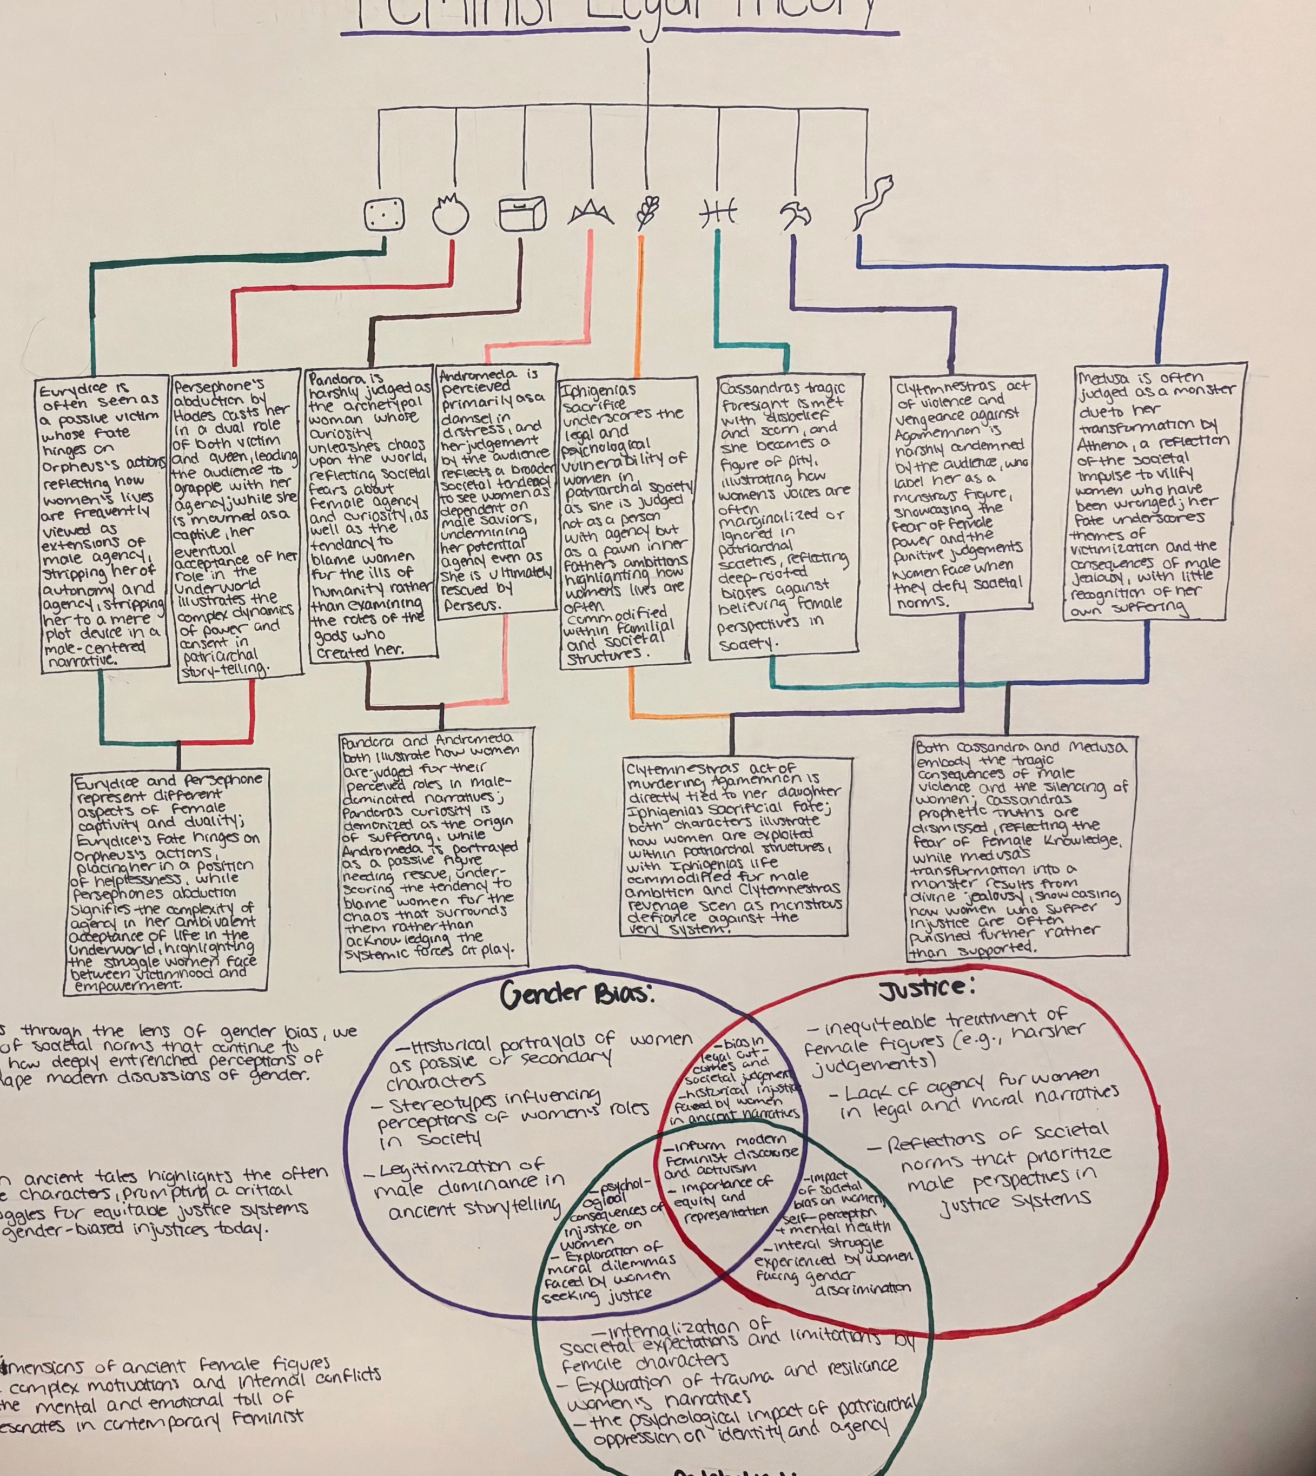 Feminist Legal Theory
Eurydice is
often seen as
a passive victim
whose fate
hinges on
Orpheus's actions
reflecting how
women's lives
are frequently
viewed as
extensions of
male agency,
stripping her of
autonomy and
agency, stripping
her to a mere
plot device in a
male-centered
narrative.
Persephone's
abduction by
Hades casts her
in a dual role
of both victim
and queen, leading
the audience to
grapple with her
agency; while she
is mourned as a
captive, her
eventual
acceptance of her
role in the
underworld
illustrates the
complex dynamics
of power and
consent in
patriarchal
story-telling.
Pandora is
harshly judged as
the archetypal
woman whose
curiosity
unleashes chaos
upon the world,
reflecting societal
fears about
female agency
and curiosity, as
well as the
tendancy to
blame women
for the ills of
humanity rather
than examining
the roles of the
gods who
created her.
Andromeda is
percieved
primarily as a
damsel in
distress, and
her judgement
by the audience
reflects a broader
societal tendency
to see women as
dependent on
male saviors,
undermining
her potential
agency even as
she is ultimately
rescued by
Perseus.
Iphigenias
sacrifice
underscores the
legal and
psychological
vulnerability of
women in
patriarchal society
as she is judged
not as a person
with agency but
as a pawn in her
fathers ambitions
highlighting how
women's lives are
often
commodified
within familial
and societal
structures.
Cassandras tragic
foresight is met
with disbelief
and scorn, and
she becomes a
figure of pity,
illustrating how
womens voices are
often
marginalized or
ignored in
patriarchal
societies, reflecting
deep-rooted
biases against
believing female
perspectives in
society.
Clytemnestras act
of violence and
vengeance against
Agamemnon is
harshly condemned
by the audience, who
label her as a
monstrous figure,
showcasing the
fear of female
power and the
punitive judgements
women face when
they defy societal
norms.
Medusa is often
judged as a monster
due to her
transformation by
Athena, a reflection
of the societal
impulse to villify
women who have
been wronged; her
fate underscores
themes of
victimization and the
consequences of male
jealousy, with little
recognition of her
own suffering
Eurydice and Persephone
represent different
aspects of female
captivity and duality;
Eurydice's fate hinges on
Orpheus's actions,
placing her in a position
of helplessness, while
Persephones abduction
signifies the complexity of
agency in her ambivalent
acceptance of life in the
underworld, highlighting
the struggle women face
between victimhood and
empowerment.
Pandora and Andromeda
both illustrate how women
are judged for their
perceived roles in male-
dominated narratives;
Pandoras curiosity is
demonized as the origin
of suffering, while
Andromeda is portrayed
as a passive figure
needing rescue, under-
scoring the tendency to
blame women for the
chaos that surrounds
them rather than
acknowledging the
systemic forces at play.
Clytemnestras act of
murdering Agamemnon is
directly tied to her daughter
Iphigenias sacrificial fate;
both characters illustrate
how women are exploited
within patriarchal structures,
with Iphigenias life
commodified for male
ambition and Clytemnestras
revenge seen as monstrous
defiance against the
very system.
Both Cassandra and Medusa
embody the tragic
consequences of male
violence and the silencing of
women; Cassandras
prophetic truths are
dismissed, reflecting the
fear of female knowledge,
while medusa's
transformation into a
monster results from
divine jealousy, showcasing
how women who suffer
injustice are often
punished further rather
than supported.
s through the lens of gender bias, we
of societal norms that continue to
how deeply entrenched perceptions of
ape modern discussions of gender.
n ancient tales highlights the often
e characters, prompting a critical
uggles for equitable justice systems
gender-biased injustices today.
imensions of ancient female figures
complex motivations and internal conflicts
the mental and emotional toll of
esonates in contemporary feminist
Gender Bias:
- Historical portrayals of women
as passive or secondary
characters
- Stereotypes influencing
perceptions of women's roles
in society
- Legitimization of
male dominance in
ancient storytelling
Justice:
- inequiteable treatment of
female figures (e.g., harsher
judgements)
- Lack of agency for women
in legal and moral narratives
- Reflections of societal
norms that prioritize
male perspectives in
justice systems
- bias in
legal out-
comes and
societal judgement
- historical injustice
faced by women
in ancient narratives
- inform modern
feminist discourse
and activism
- importance of
equity and
representation
- psychol-
ogical
consequences of
injustice on
women
- Exploration of
moral dilemmas
faced by women
seeking justice
- impact
of societal
bias on womens
self-perception
+ mental health
- interal struggle
experienced by women
facing gender
discrimination
- internalization of
societal expectations and limitations by
female characters
- Exploration of trauma and resiliance
women's narratives
- the psychological impact of patriarchal
oppression on identity and agency